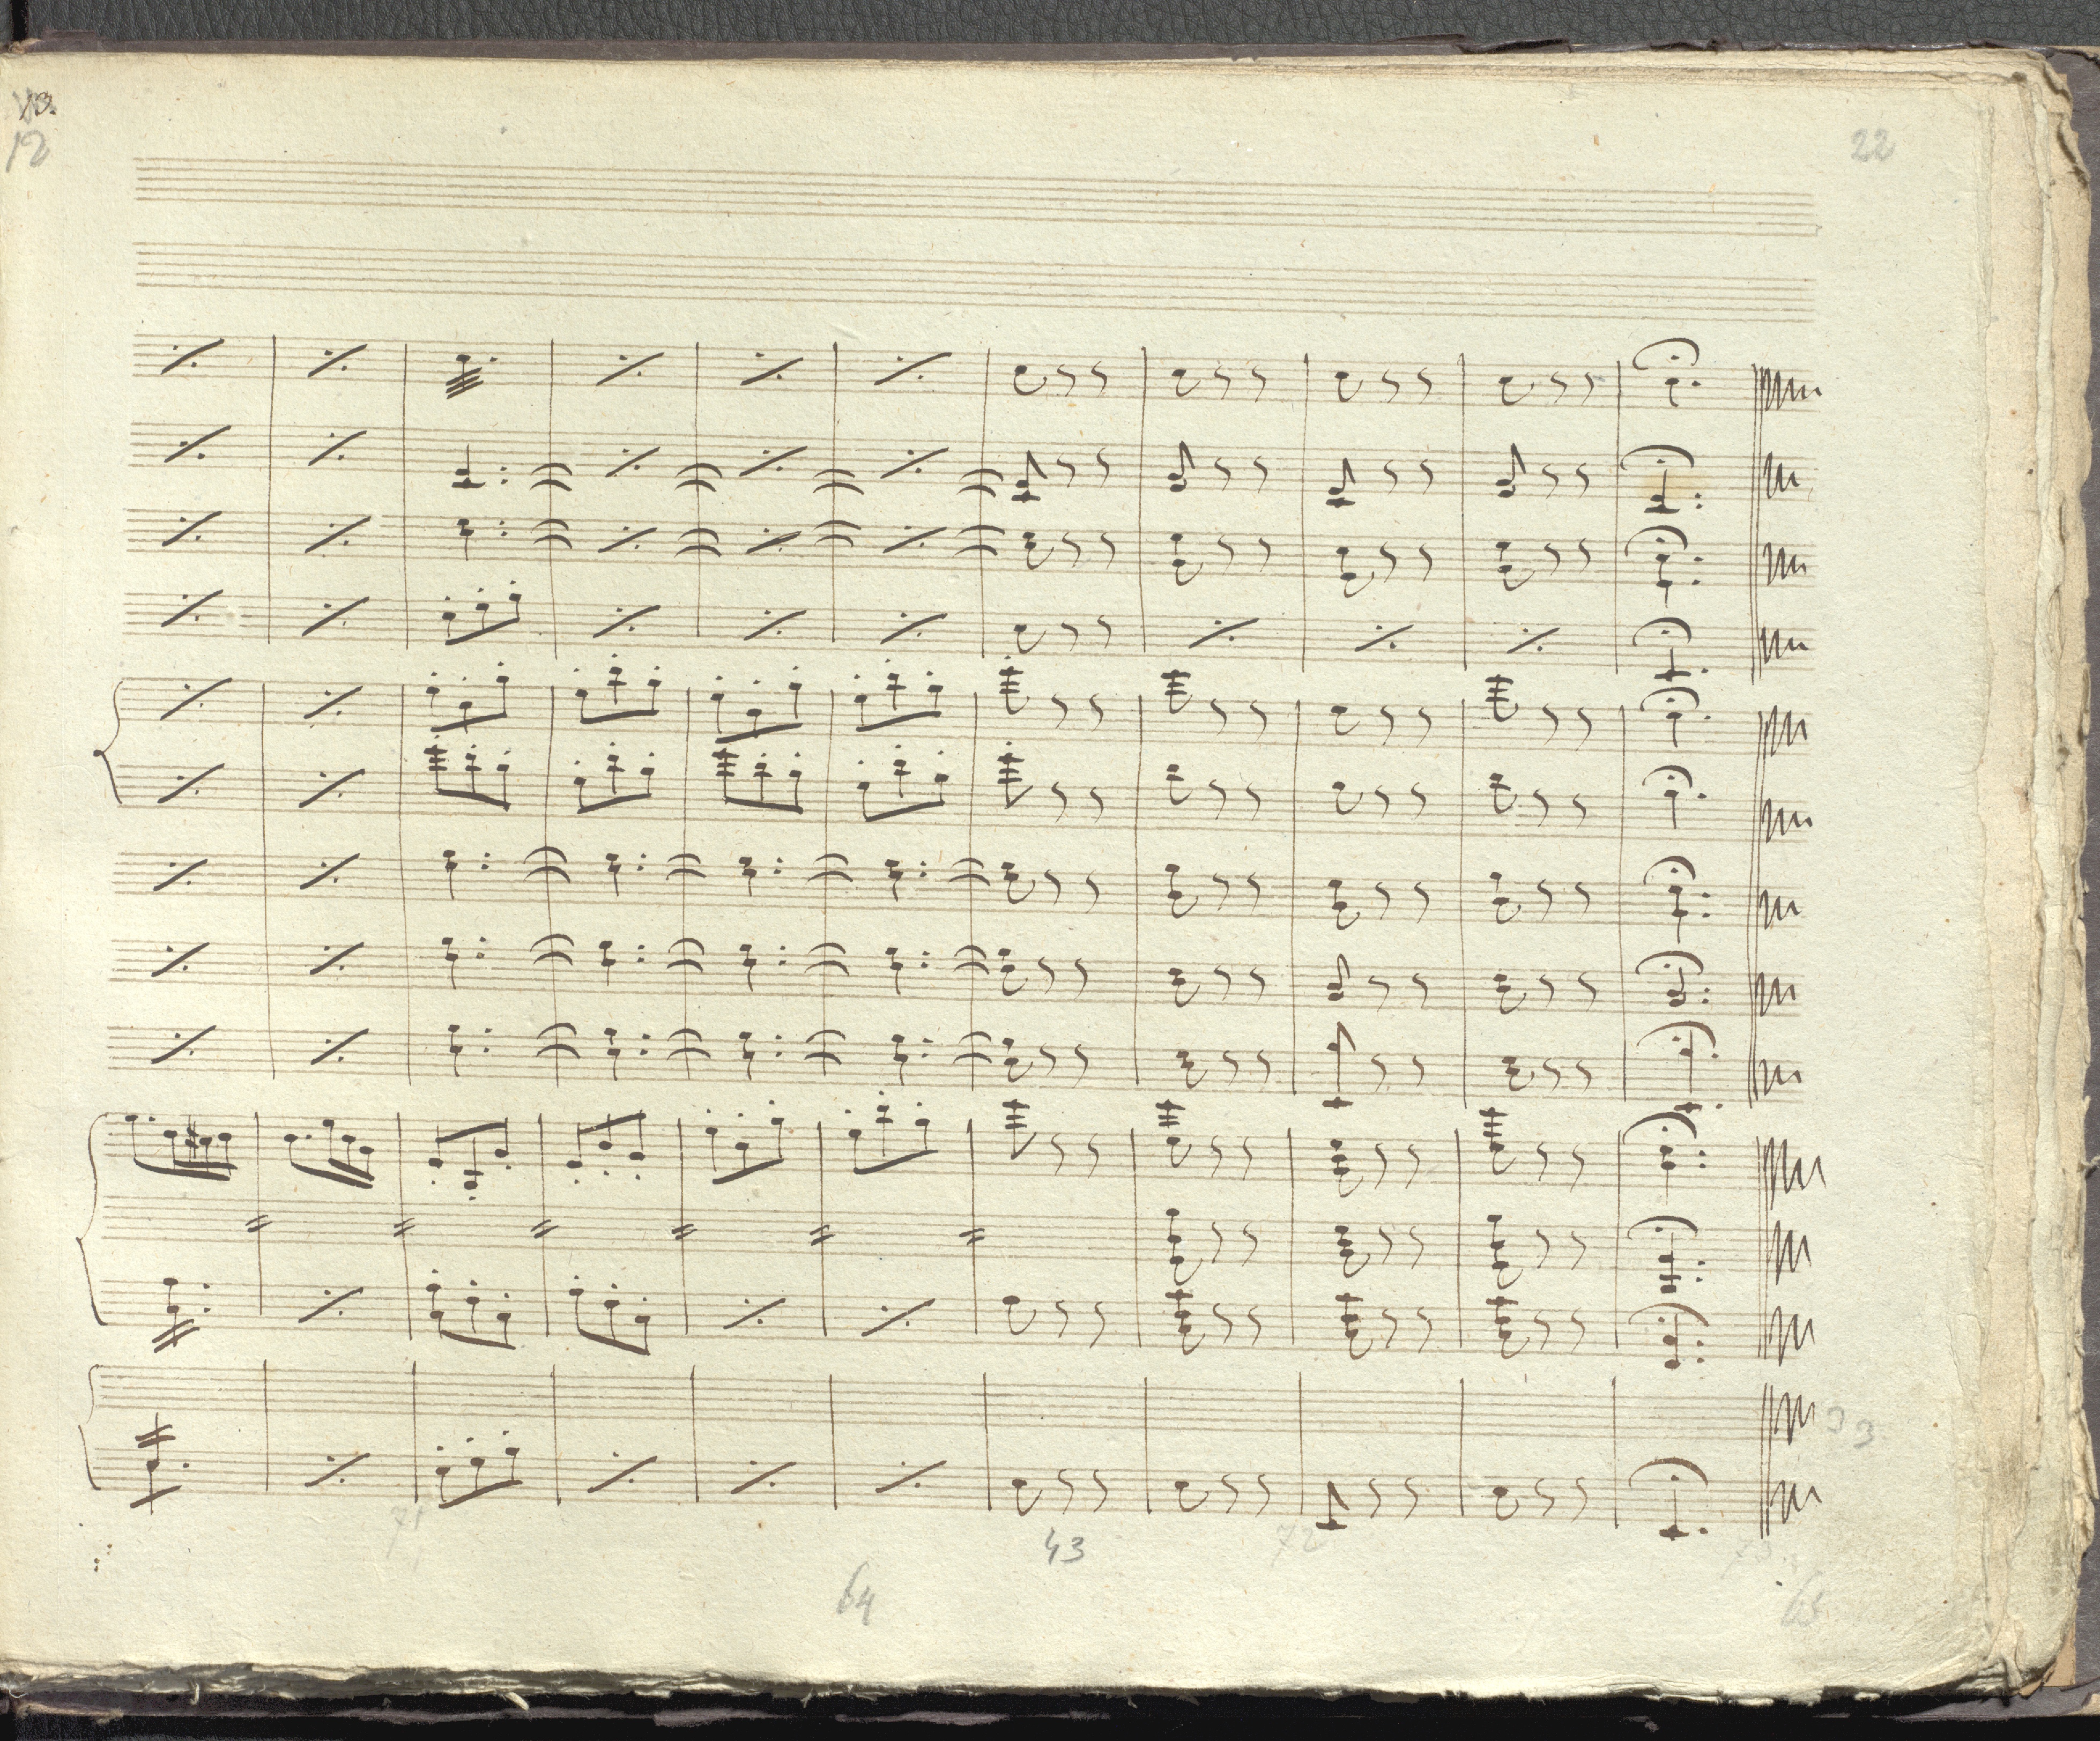 12
22
33
71
43
72
64